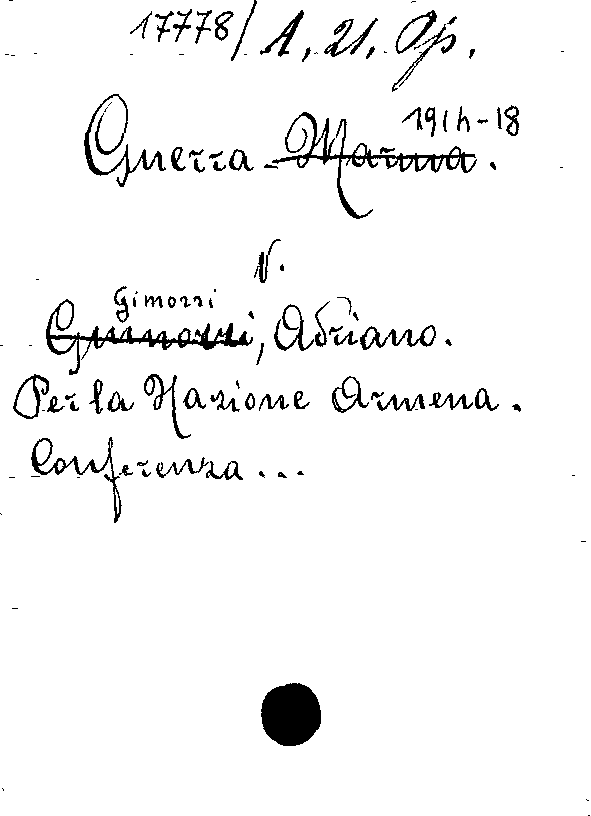 17778/ A, 21, Op.
1914-18
Guerra - Marina.
V.
Gimorri
Guinorri, Adriano.
Per la Nazione Armena.
Conferenza ...